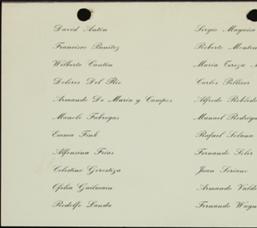 David Antón
Francisco Benítez
Wilberto Cantón
Dolores Del Río
Armando De María y Campos
Manolo Fábregas
Emma Fink
Alfonsina Frías
Celestino Gorostiza
Ofelia Guilmain
Rodolfo Landa
Sergio Magaña
Roberto
María Teresa
Carlos Pellicer
Alfredo
Manuel
Rafael Solana
Fernando Soler
Juan Soriano
Armando
Fernando